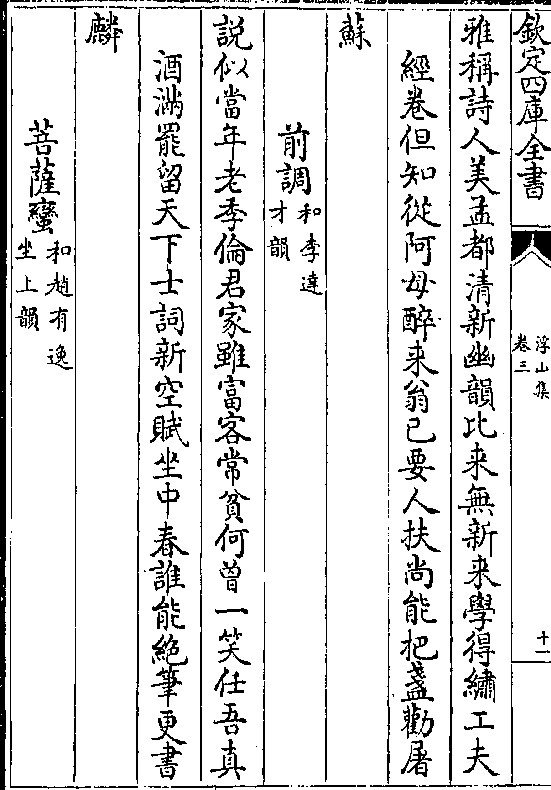 欽定四庫全書
浮山集
卷三
十一
雅稱詩人美孟都清新幽韻比来無新来學得繡工夫
經卷但知從阿母醉来翁已要人扶尚能把盞勸屠
蘇
前調和李達
才韻
說似當年老季倫君家雖富客常貧何曾一笑任吾真
酒滿罷留天下士詞新空賦坐中春誰能絕筆更書
麟
菩薩蠻和趙有逸
坐上韻